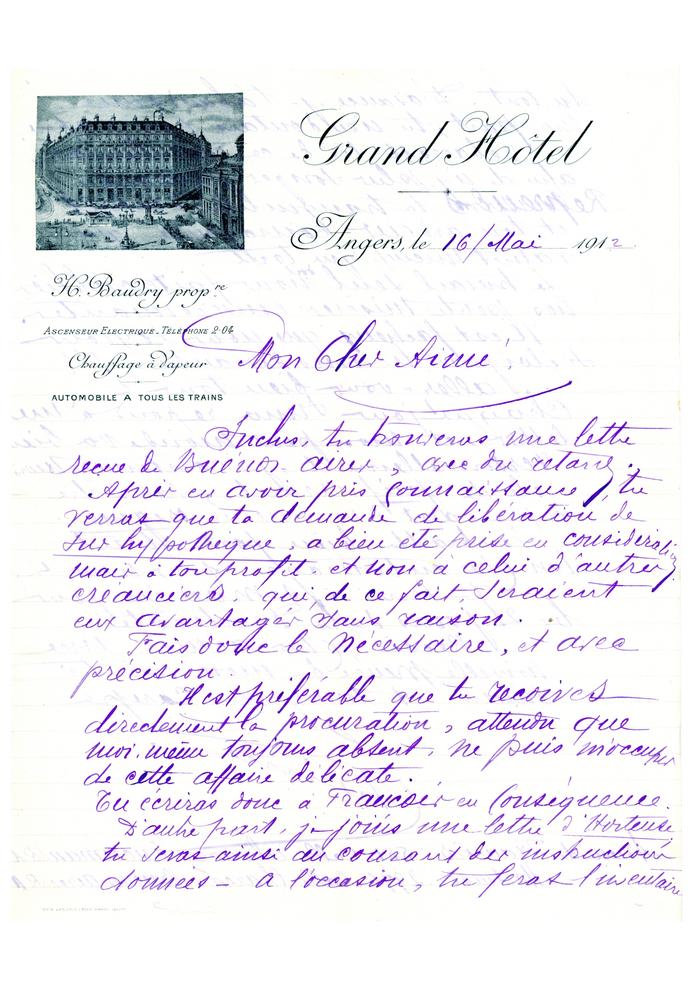 Grand Hôtel
Angers, le 16/Mai 1912
H. Baudry prop.re
ASCENSEUR ELECTRIQUE - TÉLÉPHONE 2-04
Chauffage à Vapeur
AUTOMOBILE A TOUS LES TRAINS
Mon Cher Aimé,
Inclus, tu trouveras une lettre
reçue de Buénos-aires, avec du retard.
Après en avoir pris connaissance, tu
verras que ta demande de libération de
sur hypothèque, a bien été prise en considération
mais à ton profit, et non à celui d'autres
créanciers, qui, de ce fait, seraient
eux avantagés sans raison.
Fais donc le nécessaire, et avec
précision.
Il est préférable que tu reçoives
directement la procuration, attendu que
moi-même toujours absent, ne puis m'occuper
de cette affaire délicate.
Tu écriras donc à Francois en conséquence.
D'autre part, je joins une lettre d'Hortense
tu seras ainsi au courant des instructions
données - A l'occasion, tu feras l'inventaire